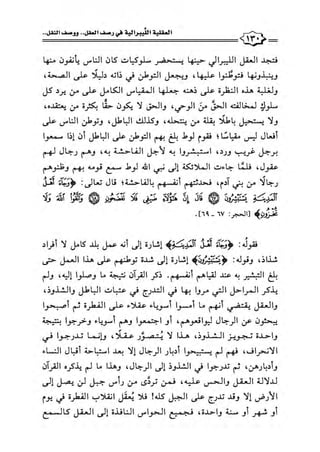 العقلية اللِّيبرالية في رصف العقل.. ووصف النقل..
١٣٠
فتجد العقل الليبرالي حينها يستحضر سلوكيات كان الناس يأنفون منها
وينبذونها فتوطَّنوا عليها، ويجعل التوطن في ذاته دليلًا على الصحة،
ولغلبة هذه النظرة على ذهنه جعلها المقياس الكامل على من يرد كل
سلوكٍ لمخالفته الحقَّ من الوحي، والحق لا يكون حقًّا بكثرة من يعتقده،
ولا يستحيل باطلًا بقلة من ينتحله، وكذلك الباطل، وتوطن الناس على
أفعال ليس مقياسًا؛ فقوم لوط بلغ بهم التوطن على الباطل أن إذا سمعوا
برجل غريب ورد، استبشروا به لأجل الفاحشة به، وهم رجال لهم
عقول، فلمَّا جاءت الملائكة إلى نبي الله لوط سمع قومه بهم وظنوهم
رجالًا من بني آدم، فحدثتهم أنفسهم بالفاحشة؛ قال تعالى: ﴿وَجَآءَ أَهْلُ
ٱلْمَدِينَةِ يَسْتَبْشِرُونَ ۝ قَالَ إِنَّ هَٰٓؤُلَآءِ ضَيْفِى فَلَا تَفْضَحُونِ ۝ وَٱتَّقُوا۟ ٱللَّهَ وَلَا
تُخْزُونِ﴾ [الحجر: ٦٧ ـ ٦٩].
فقولُه: ﴿وَجَآءَ أَهْلُ ٱلْمَدِينَةِ﴾ إشارة إلى أنه عمل بلد كامل لا أفراد
شذاذ، وقوله: ﴿يَسْتَبْشِرُونَ﴾ إشارة إلى شدة توطنهم على هذا العمل حتى
بلغ التبشير به عند لقياهم أنفسهم. ذكر القرآن نتيجة ما وصلوا إليه، ولم
يذكر المراحل التي مروا بها في التدرج في عتبات الباطل والشذوذ،
والعقل يقتضي أنهم ما أمسوا أسوياء عقلاء على الفطرة ثم أصبحوا
يبحثون عن الرجال ليواقعوهم، أو اجتمعوا وهم أسوياء وخرجوا بنتيجة
واحدة تجويز الشذوذ، هذا لا يُتصوَّر عقلًا، وإنما تدرجوا في
الانحراف، فهم لم يستبيحوا أدبار الرجال إلا بعد استباحة أقبال النساء
وأدبارهن، ثم تدرجوا في الشذوذ إلى الرجال، وهذا ما لم يذكره القرآن
لدلالة العقل والحس عليه، فمن تردَّى من رأس جبل لن يصل إلى
الأرض إلا وقد تدرج على الجبل كله! فلا يُعقَل انقلاب الفطرة في يوم
أو شهر أو سنة واحدة، فجميع الحواس النافذة إلى العقل كالسمع